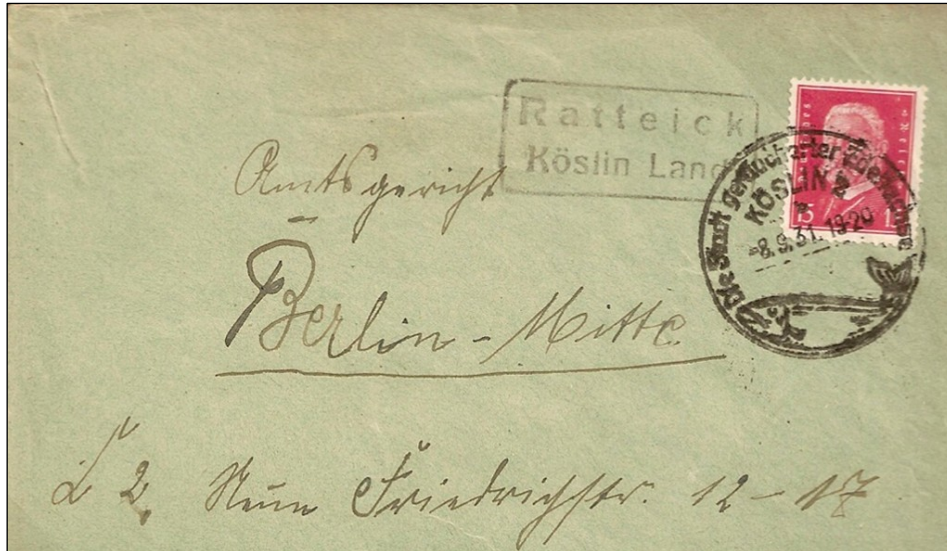 Ratteick
Köslin Land
Die Stadt geräucherter Edellachse
KÖSLIN 2
-8.9.31.19-20
15 15
Amtsgericht
Berlin-Mitte
C 2, Neue Friedrichstr. 12-17